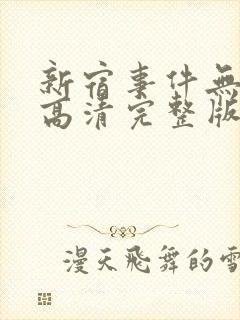 新宿事件無
高清完整版
漫天飛舞的雪